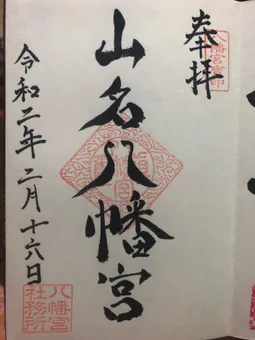 奉拝
八幡宮御印
山名八幡宮
令和二年二月十六日
八幡宮
社務所